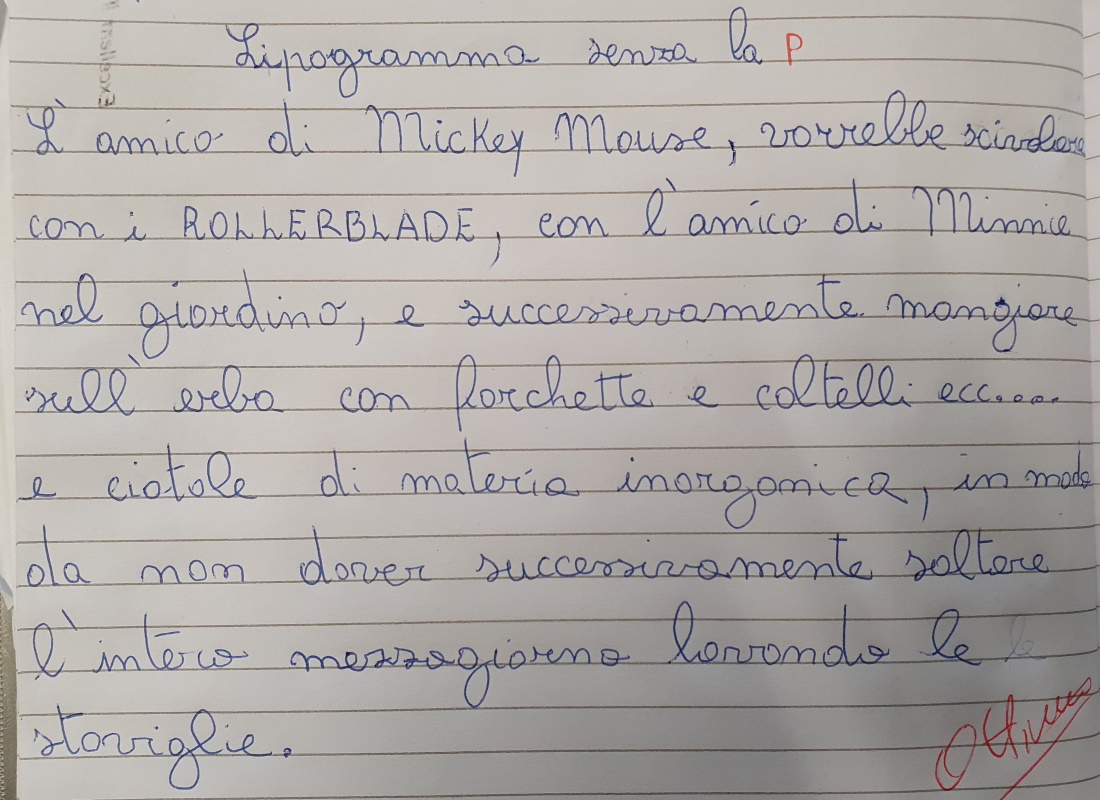 Lipogramma senza la P
L'amico di Mickey Mouse, vorrebbe scivolare
con i ROLLERBLADE, con l'amico di Minnie
nel giardino, e successivamente mangiare
sull'erba con forchette e coltelli ecc....
e ciotole di materia inorganica, in modo
da non dover successivamente saltare
l'intero mezzogiorno lavando le
stoviglie.
Ottimo